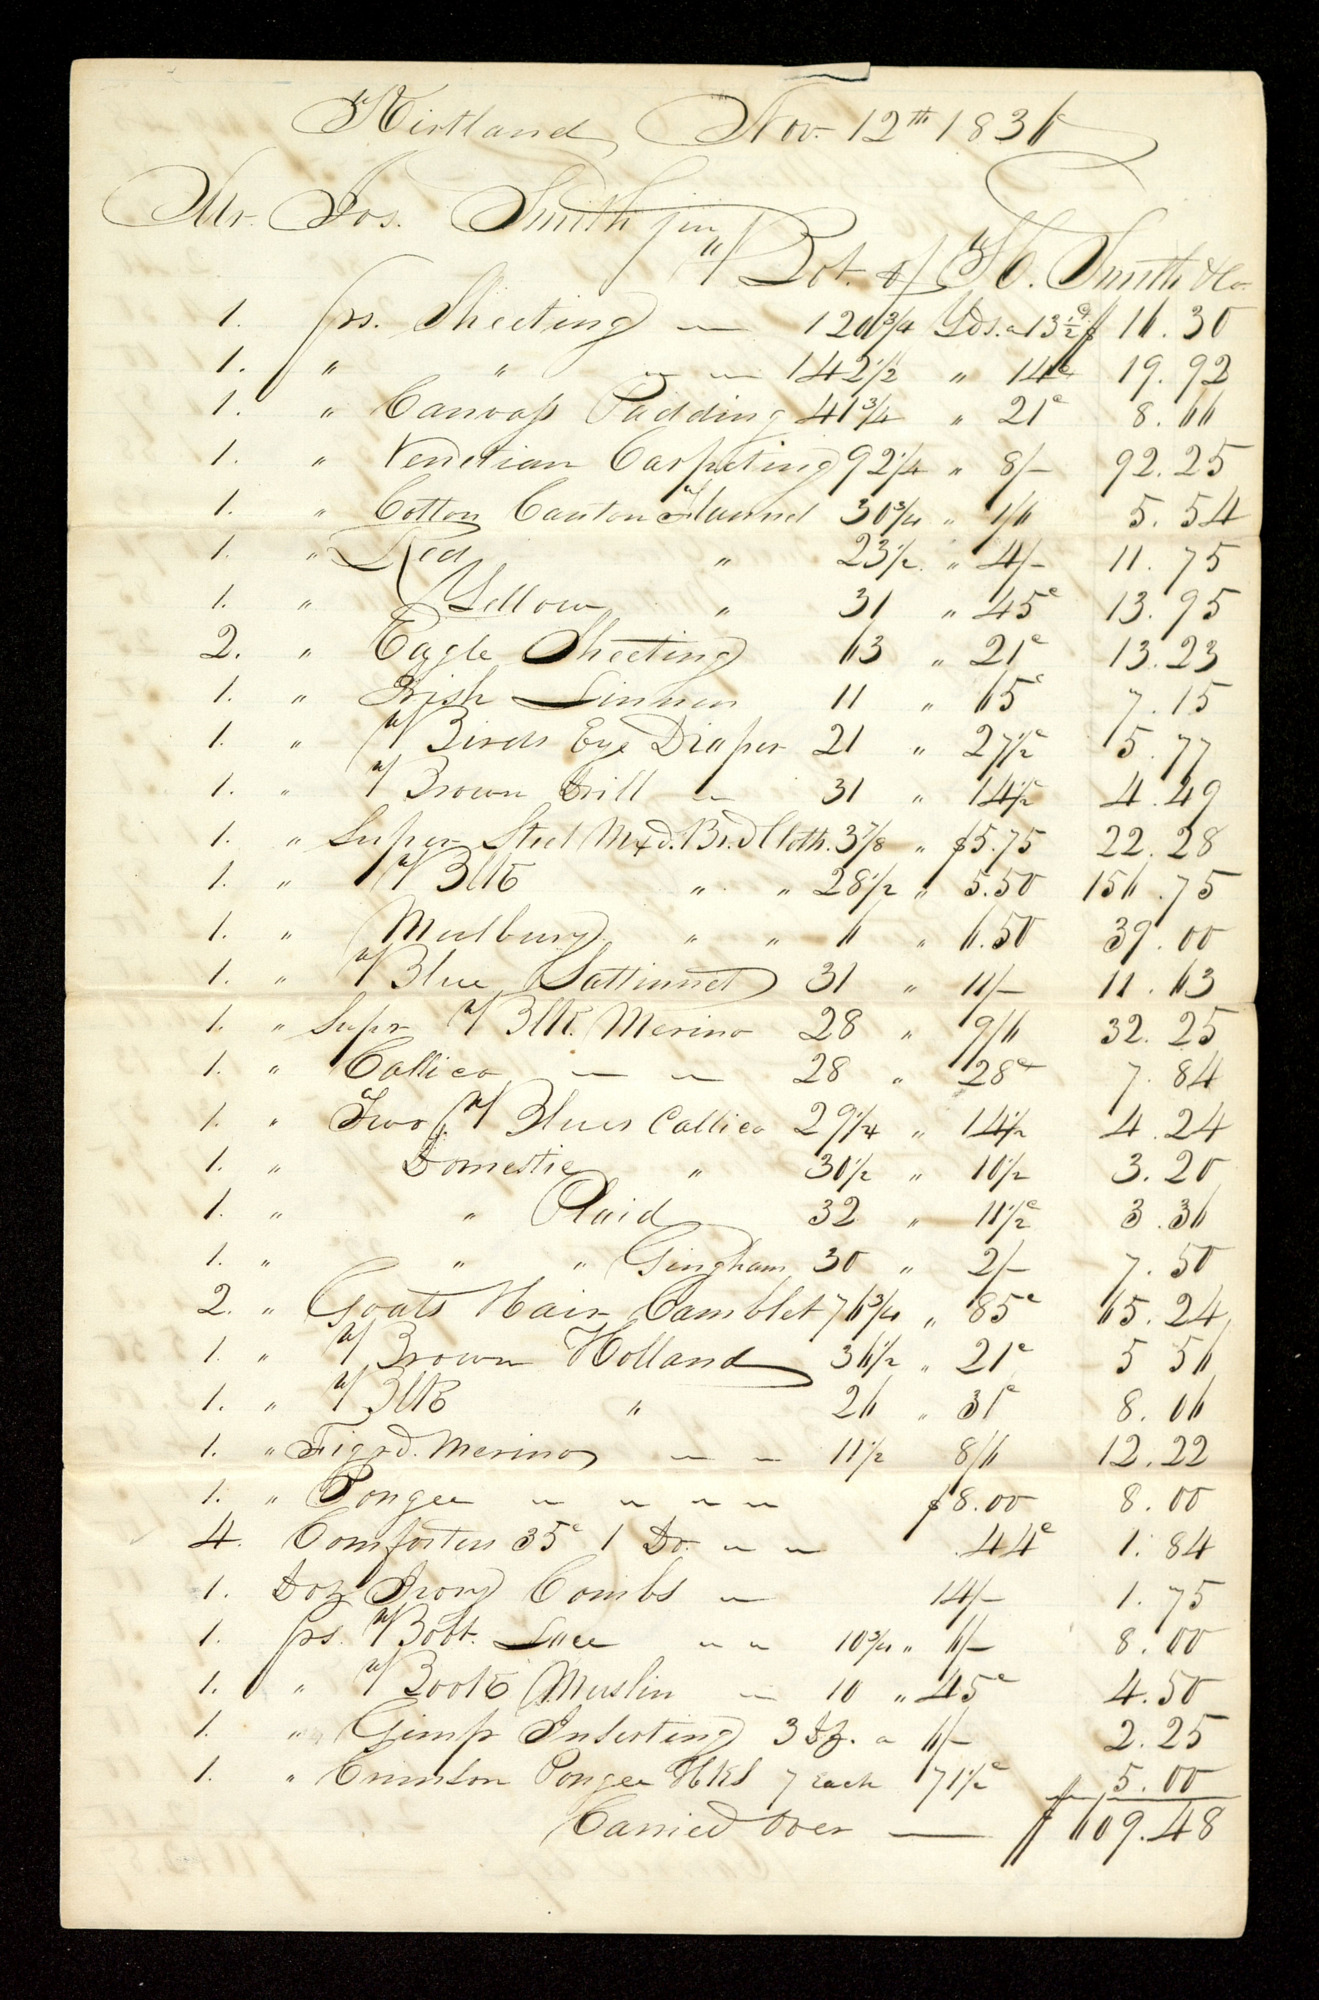 Kirtland Nov. 12th 1836
Mr. Jos. Smith jun
Bot. of H. Smith & Co.
1. ps. Sheeting — 120 3/4 Yds. a 13 1/2 c $ 16.30
1. " " — — 142 1/2 " 14c 19.92
1. " Canvass Padding 41 3/4 " 21c 8.66
1. " Venetian Carpeting 92 1/4 " 8/- 92.25
1. " Cotton Canton Flannel 30 3/4 " 1/6 5.54
1. " Red " 23 1/2 " 4/- 11.75
1. " Yellow " 31 " 45c 13.95
2. " Eagle Sheeting 63 " 21c 13.23
1. " Irish Linnen 11 " 65c 7.15
1. " Birds Eye Diaper 21 " 27 1/2c 5.77
1. " Brown Drill — 31 " 14 1/2c 4.49
1. " Super Steel Mxd. Brd Cloth. 3 7/8 " $5.75 22.28
1. " Blk " " 28 1/2 " 5.50 156.75
1. " Mulbury " " 6 " 6.50 39.00
1. " Blue Sattinnet 31 " 11.63
1. " Supr Blk. Merino 28 " 9/6 32.25
1. " Callico — — 28 " 28c 7.84
1. " Two Blues Callico 29 1/4 " 14 1/2 4.24
1. " Domestic " 30 1/2 " 10 1/2 3.20
1. " " Plaid 32 " 11 1/2c 3.36
1. " " " Gingham 30 " 2/- 7.50
2. " Goats Hair Camblet 76 3/4 " 85c 65.24
1. " Brown Holland 36 1/2 " 21c 5 56
1. " Blk " 26 " 31c 8.06
1. " Figrd. Merino — — 11 1/2 8/6 12.22
1. " Pongee — — — — $8.00 8.00
4. Comforters 35c 1 Do. — — 44c 1.84
1. Doz Ivory Combs — 14/- 1.75
1. ps. Bobt. Lace — — 10 3/4 " 6/- 8.00
1. " Book Muslin — 10 " 45c 4.50
1. " Gimp Inserting 3 dz. a 6/- 2.25
1. " Crimson Pongee Hkfs 7 each 71 1/2c 5.00
Carried Over — $ 609.48